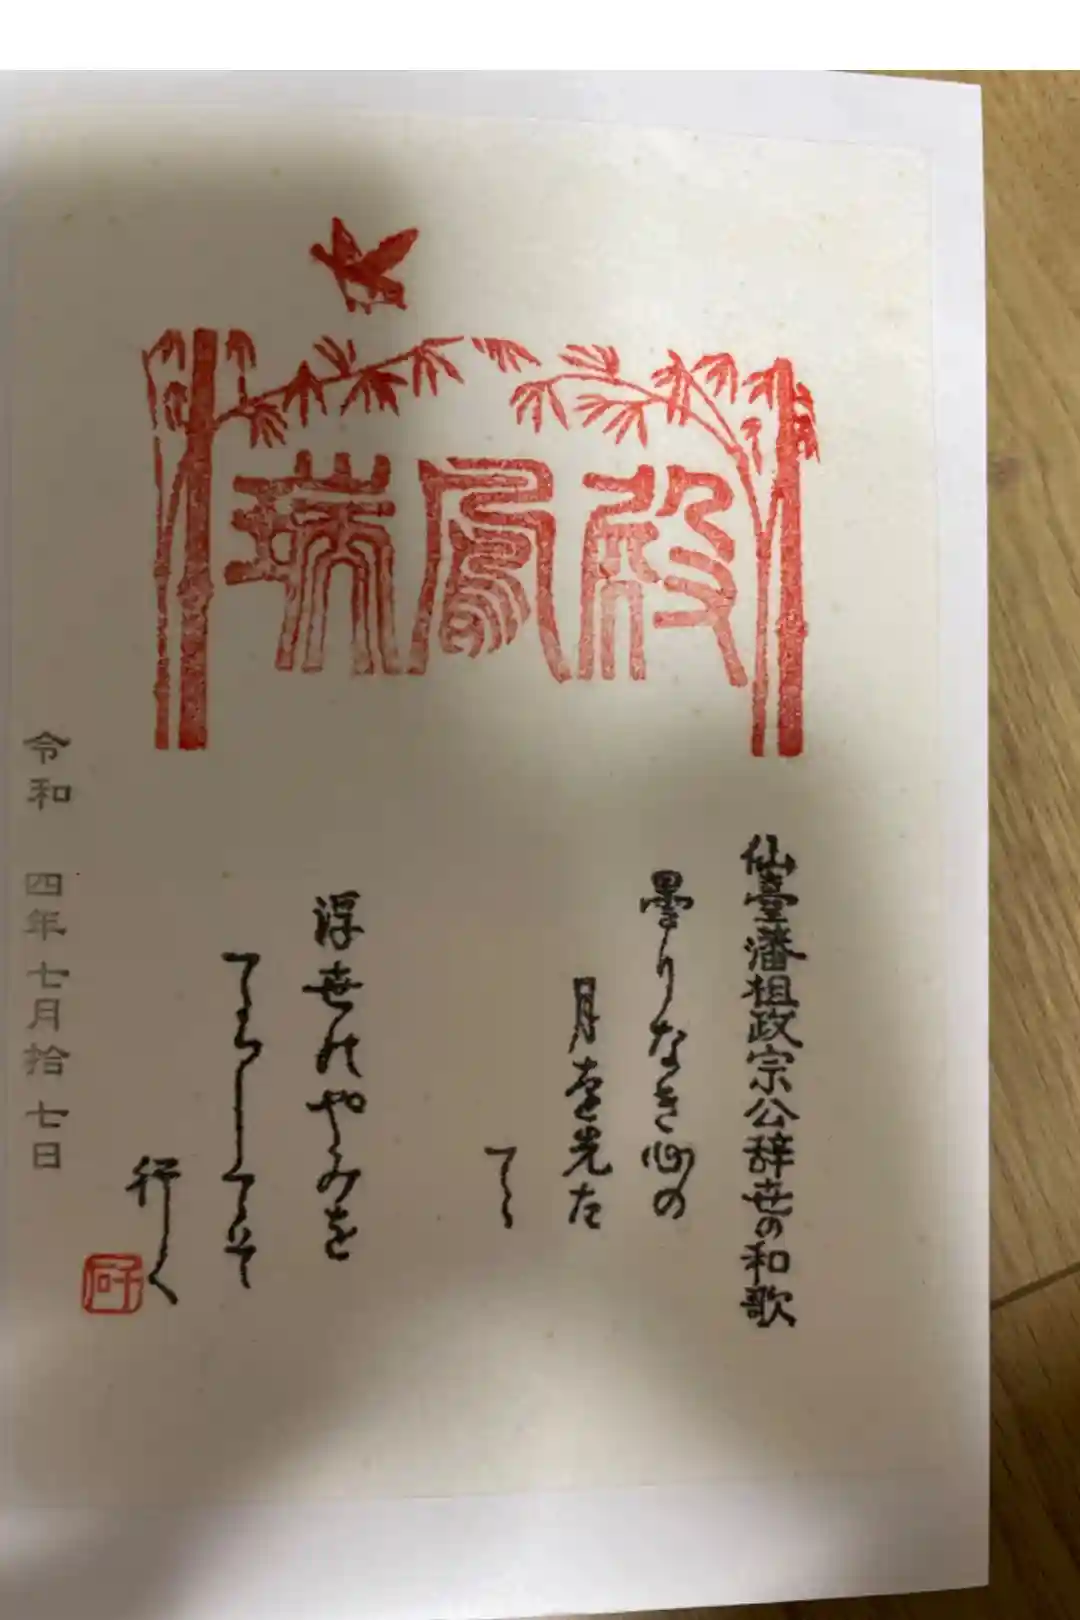 瑞鳳殿
仙臺藩祖政宗公辞世の和歌
曇りなき心の
月を光た
てゝ
浮世のやみを
てらしてそ
行く
令和 四年七月拾七日